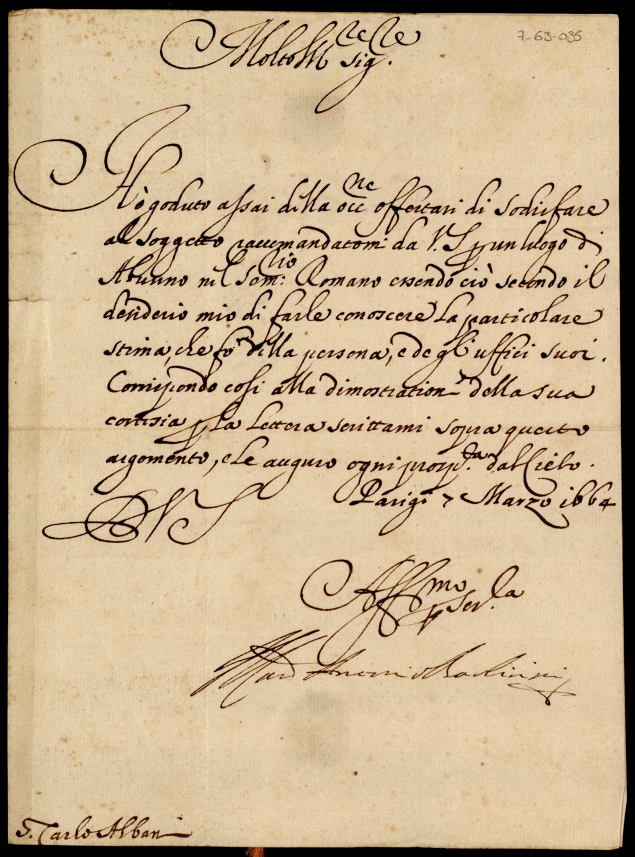 7-63-035
Molto Ill.re Sig.re
Hò goduto assai della occ.ne offertavi di sodisfare
al soggetto raccomandatomi da V.S. p un luogo di
Alunno nel Sem.rio Romano essendo ciò secondo il
desiderio mio di farle conoscere la particolare
stima, che fò della persona, e de gli uffici suoi.
Corrispondo cosi alla dimostration.e della sua
cortesia p la lettera scrittami sopra questo
argomento, e le auguro ogni prosp.tà dal Cielo.
Parigi 7 Marzo 1664
D V S
Aff.mo p ser.la
S. Carlo Albani